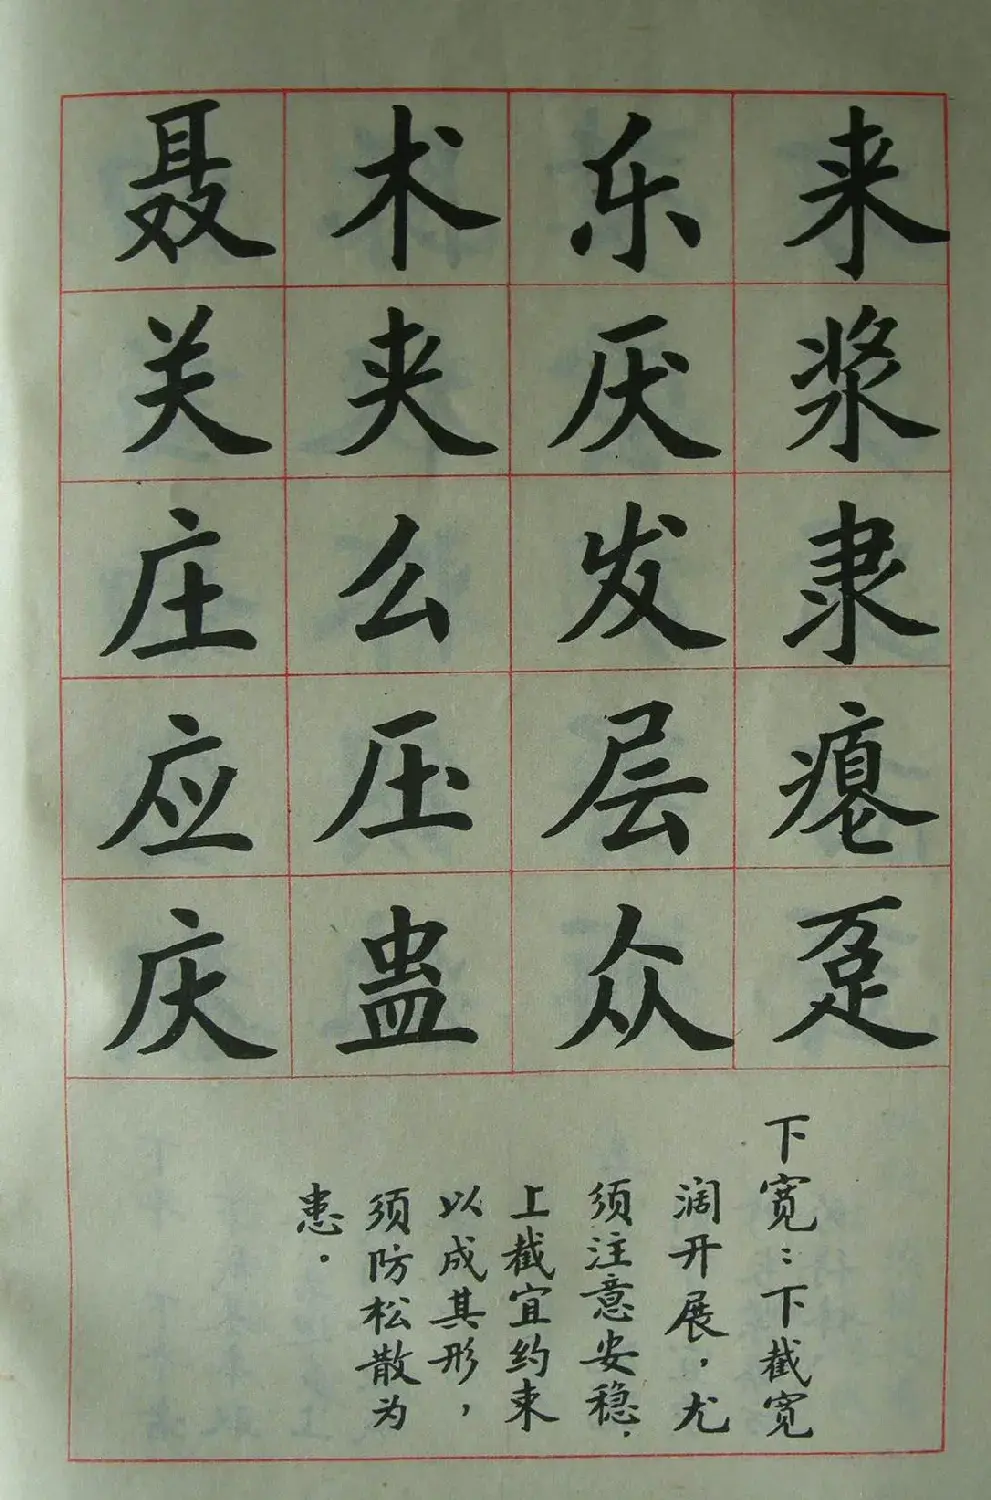 来浆隶瘪趸
乐厌发层众
术夹么压蛊
聂关庄应庆
下宽：下截宽
阔开展，尤
须注意安稳，
上截宜约束
以成其形，
须防松散为
患。